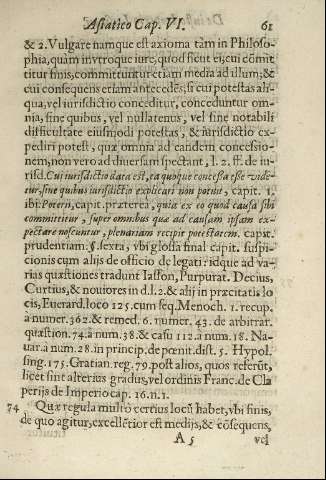 Asiatico Cap. VI. 61
& 2. Vulgare namque est axioma tàm in Philoso-
phia, quàm in vtroque iure, quòd sicut ei, cui com̃it
titur finis, committuntur etiam media ad illum; &
cui consequens etiam antecedẽs; si cui potestas ali-
qua, vel iurisdictio conceditur, conceduntur om-
nia, sine quibus, vel nullatenus, vel sine notabili
difficultate eiusmodi potestas, & iurisdictio ex-
pediri potest, quæ omnia ad eandem concessio-
nem, non vero ad diuersam spectant, l. 2. ff. de iu-
risd. Cui iurisdictio data est, ea quoque concessa esse vide-
tur, sine quibus iurisdictio explicari non potuit, capit. 1.
ibi: Poterit, capit. præterea, quia ex eo quod causa sibi
committitur, super omnibus quæ ad causam ipsam ex-
pectare noscuntur, plenariam recipit potestatem. capit.
prudentiam. §. sexta, vbi glossa final capit. suspi-
cionis cum alijs de officio delegati: idque ad va-
rias quæstiones tradunt Iasson, Purpurat. Decius,
Curtius, & nouiores in d. l. 2. & alij in præcitatis lo
cis, Euerard. loco 125. cum seq. Menoch. 1. recup.
à numer. 362. & remed. 6. numer. 43. de arbitrar.
quæstion. 74. à num. 38. & casu 112. à num. 18. Na-
uar. à num. 28. in princip. de pœnit. dist. 5. Hypol.
sing. 175. Gratian. reg. 79. post alios, quos referũt,
licet sint alterius gradus, vel ordinis Franc. de Cla
perijs de Imperio cap. 16. n. 1.
74 Quæ regula multò certius locũ habet, vbi finis,
de quo agitur, excellẽtior est medijs, & cõsequens,
A 5 vel